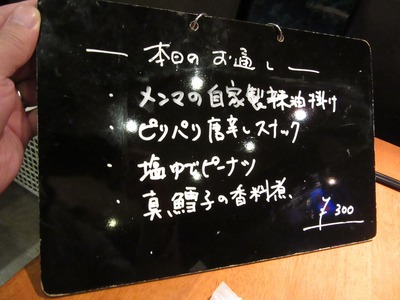 — 本日のお通し —
・メンマの自家製辣油掛け
・ピリパリ唐辛しスナック
・塩ゆでピーナツ
・真鱈子の香料煮
¥300